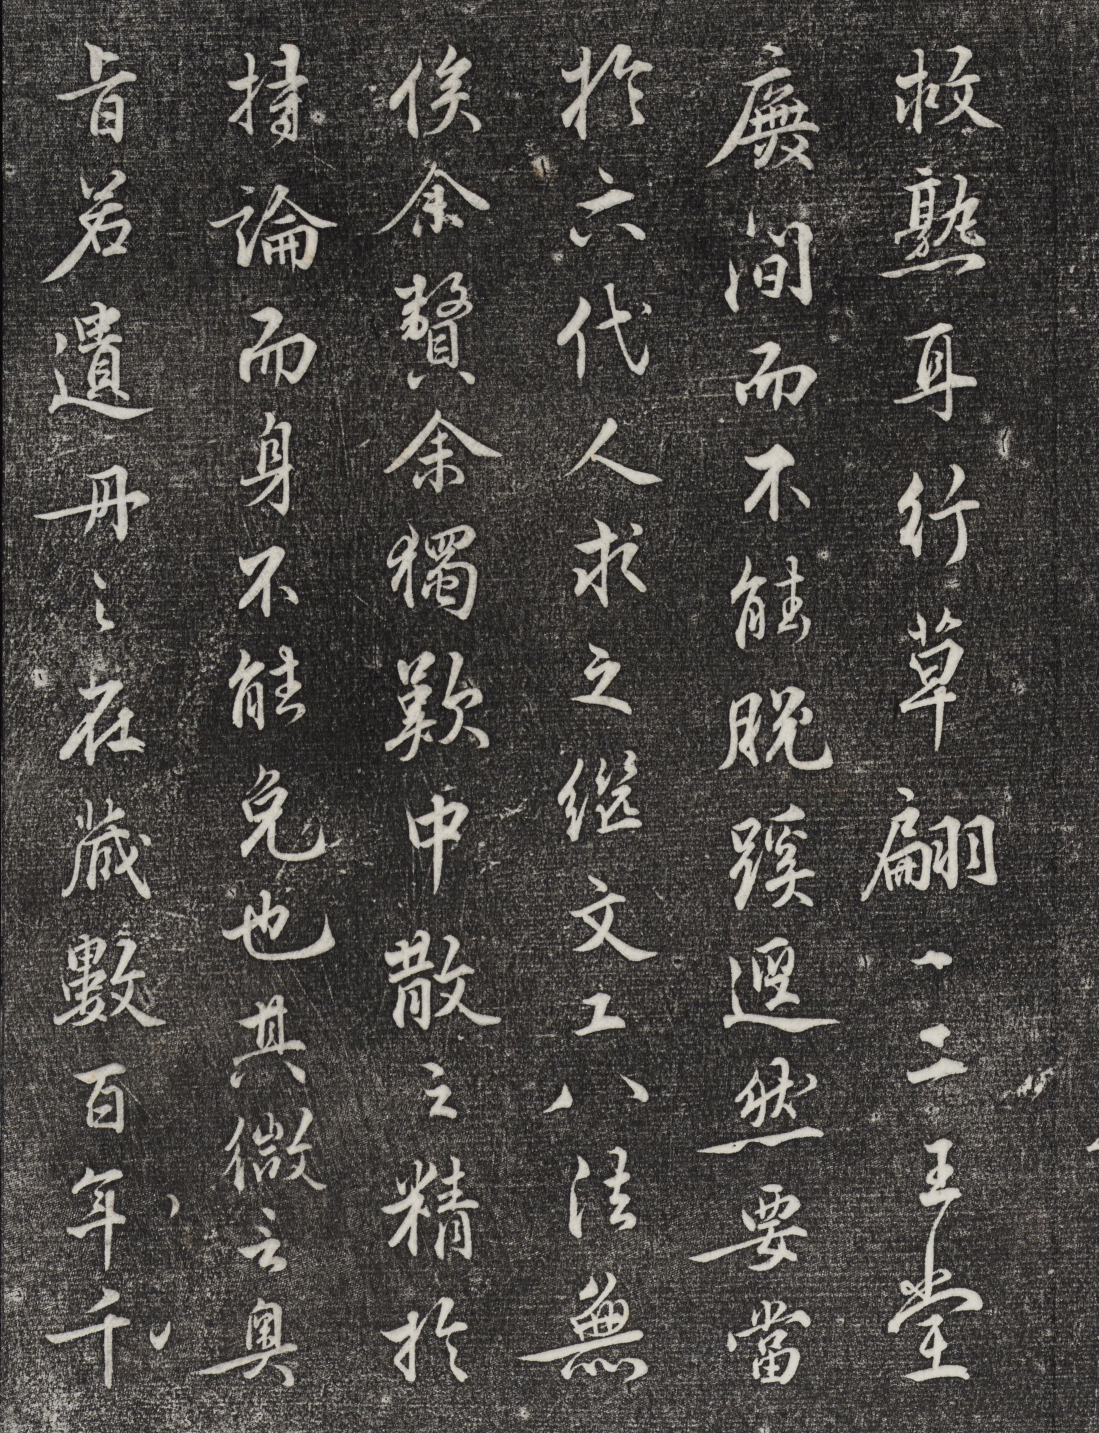 故熟耳行草翩一二王堂
廡間而不能脫蹊逕然要當
於六代人求之繼文工八法無
俟余贅余獨歎中散之精於
持論而身不能免也其微云奧
旨若遺丹之在藏數百年千